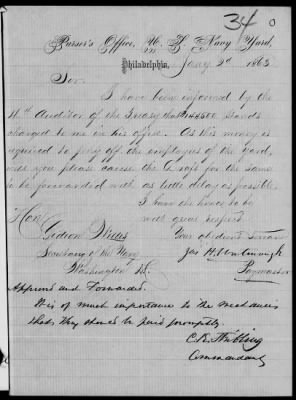 34
Purser's Office, U. S. Navy Yard,
Philadelphia, Jany 2d 1863
Sir.
I have been informed by the
4th Auditor of the Treasy that $148500 stands
charged to me in his office. As this money is
required to pay off the employees of the yard,
will you please cause the Draft for the same
to be forwarded with as little delay as possible.
I have the honor to be
with great respect
Your obedient Servant
Hon
Gideon Welles
Secretary of the Navy
Washington D.C.
Jas H.
Paymaster
Approved and Forwarded.
It is of much importance to the Mechanics
that they should be paid promptly.
C. K. Stribling
Commandant